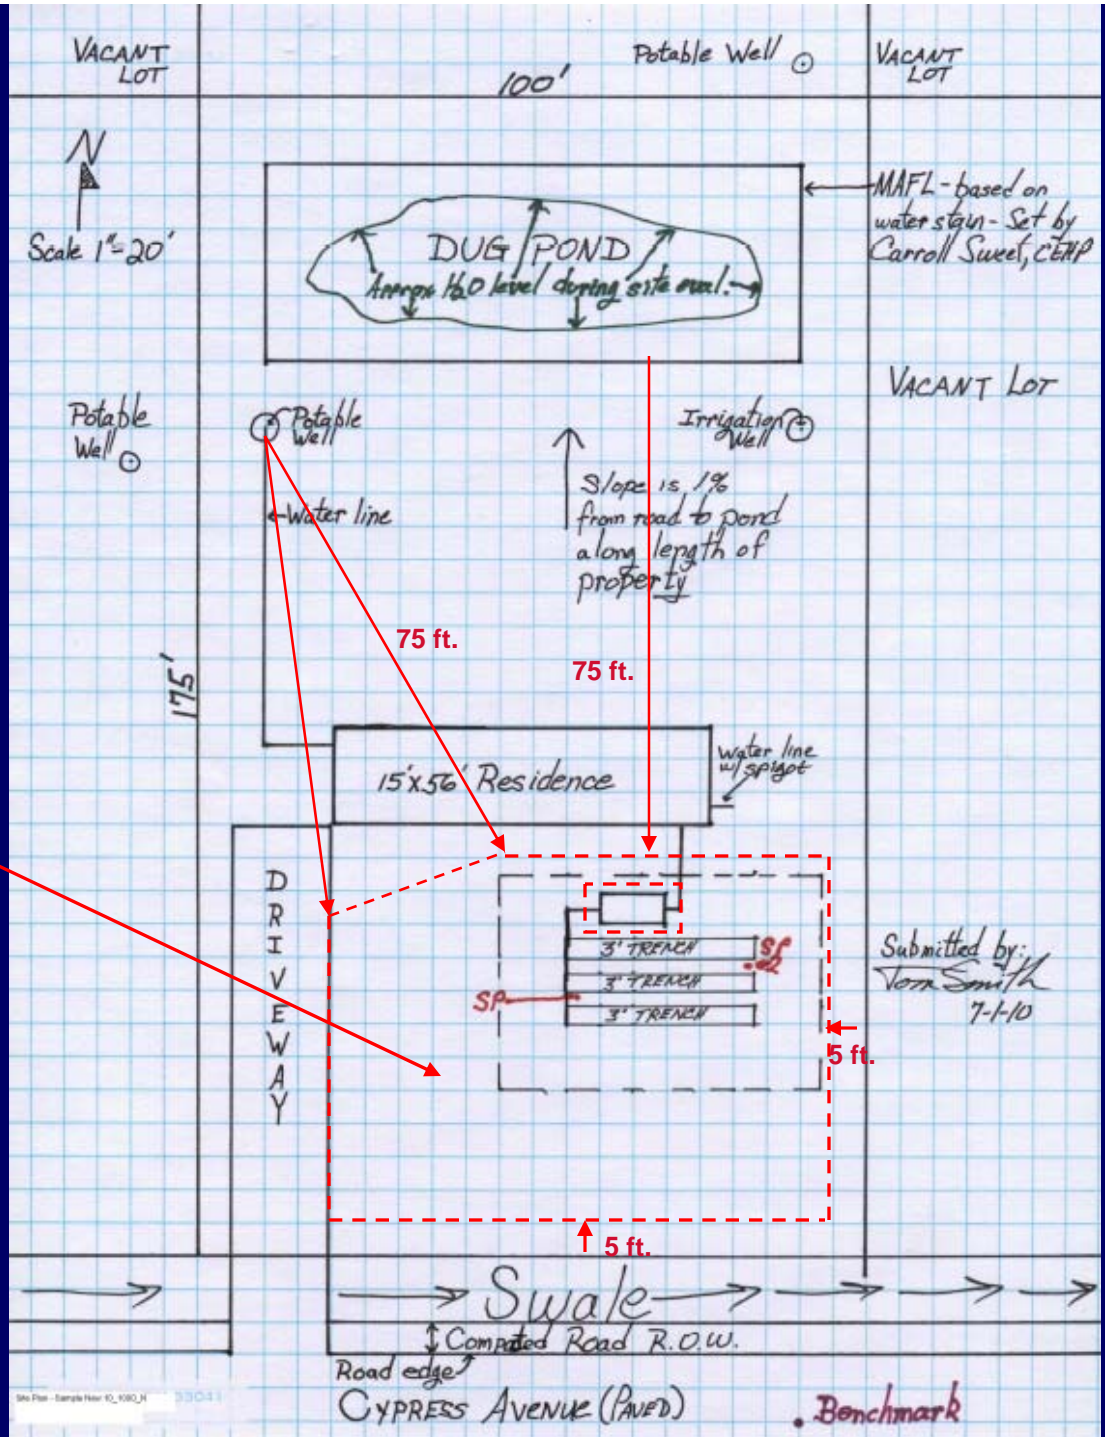 VACANT
LOT
100'
Potable Well
VACANT
LOT
N
Scale 1"=20'
DUG POND
Approx H2O level during site eval.
MAFL - based on
water stain - Set by
Carroll Sweet, CEHP
VACANT LOT
Potable
Well
Potable
Well
Irrigation
Well
Water line
Slope is 1%
from road to pond
along length of
property
75 ft.
75 ft.
175'
15'x56' Residence
water line
w/spigot
DRIVEWAY
3' TRENCH
SP
2
3' TRENCH
SP
3' TRENCH
Submitted by:
Tom Smith
7-1-10
5 ft.
5 ft.
Swale
Compacted Road R.O.W.
Road edge
CYPRESS AVENUE (PAVED)
Benchmark